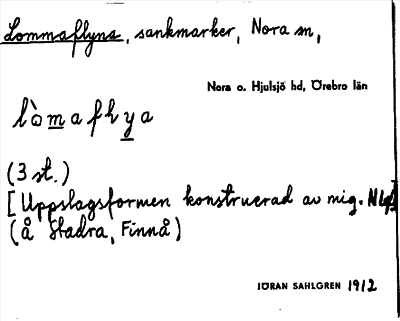 Lommaflyna, sankmarker, Nora sn,
Nora o. Hjulsjö hd, Örebro län
lòmaflya
(3 st.)
[Uppslagsformen konstruerad av mig.
(å Stadra, Finnå)
JÖRAN SAHLGREN 1912